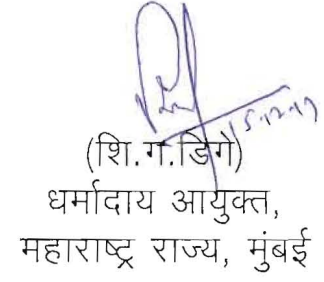 15.12.17
(शि.ग.डिगे)
धर्मादाय आयुक्त,
महाराष्ट्र राज्य, मुंबई